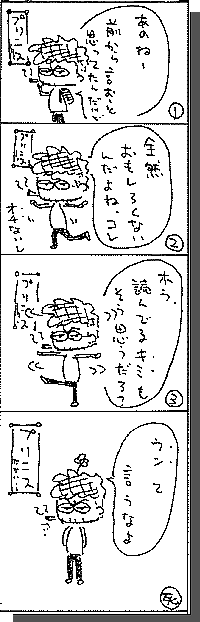 プリニス
あのね〜
前から言おと
思ってたんだけど
①
プリニス
全然
おもしろくない
んだよね、コレ
オチないし
②
プリニス
ホラ.
読んでるキミも
そう思うだろ?
③
プリニス
ウン.て
言うなよ